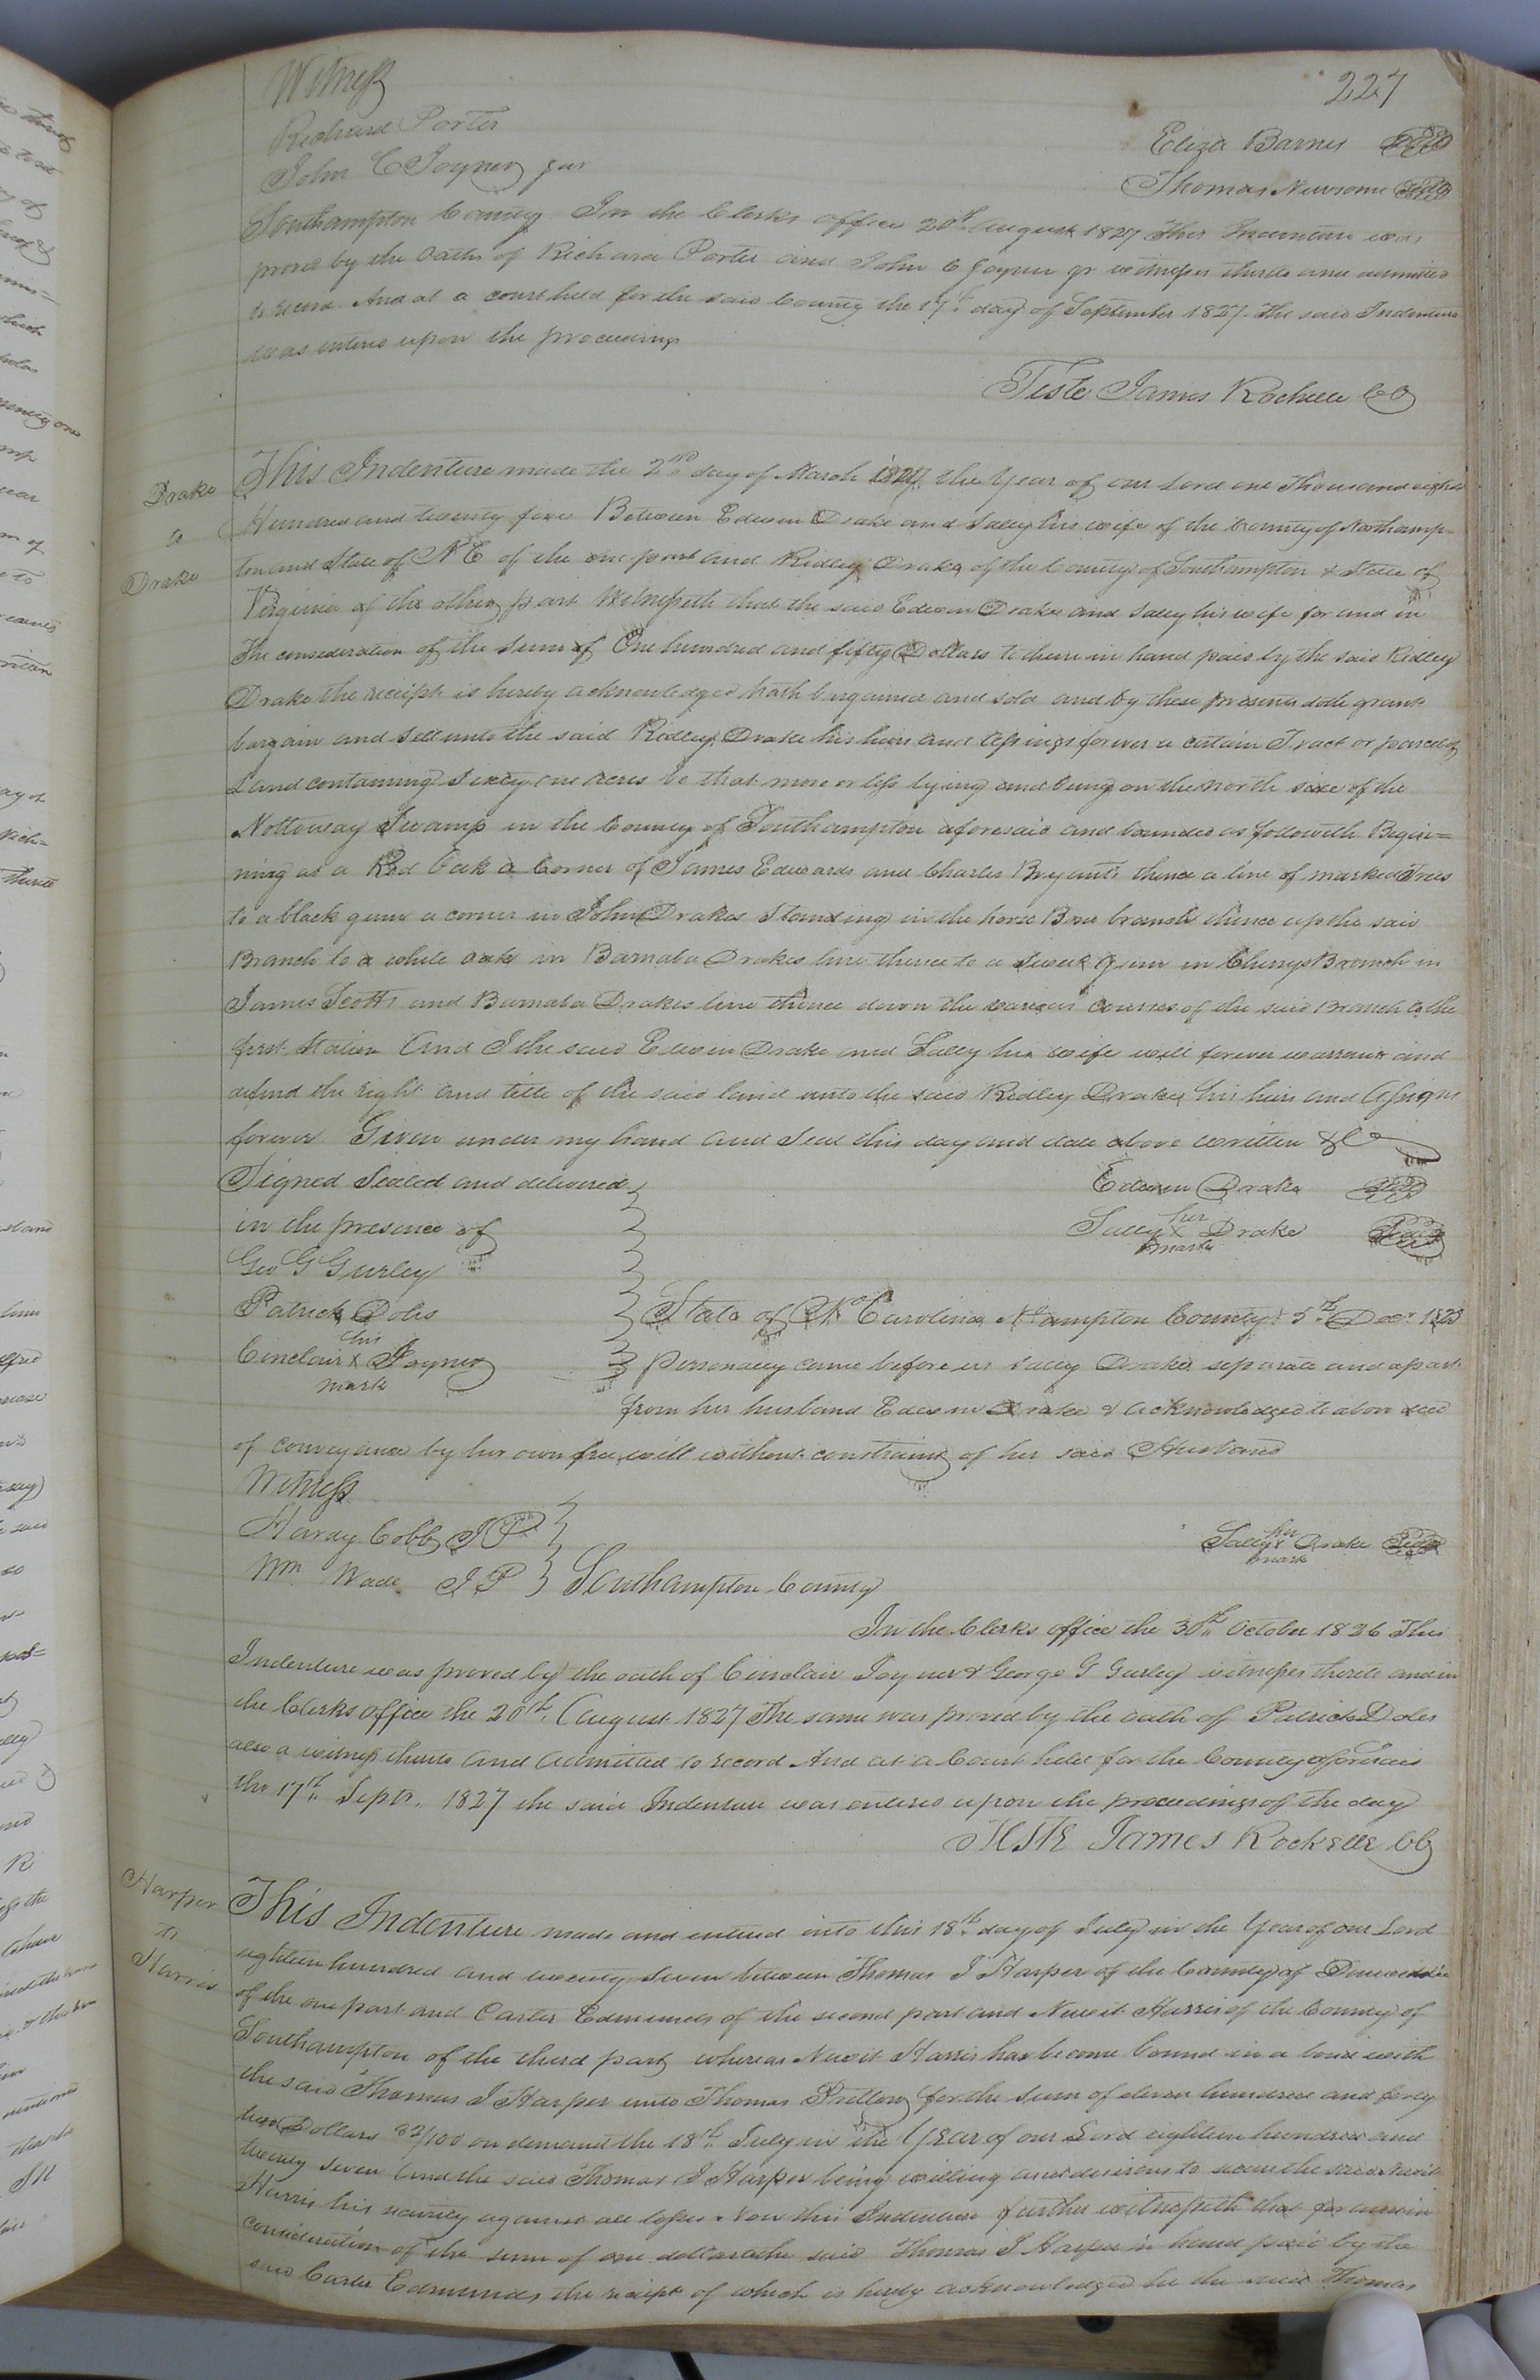 227
Witness
Richard Porter
Eliza Barnes Seal
John C Joyner jur
Thomas Newsome Seal
Southampton County. In the Clerks office 20th August 1827 This Indenture was
proved by the oaths of Richard Porter and John C Joyner jr witnesses thereto and admitted
to record. And at a court held for the said County the 17th day of September 1827. The said Indenture
was entered upon the proceedings
Teste James Rochelle CC
Drake
to
Drake
This Indenture made the 2nd day of March 1827 the Year of our Lord one Thousand eight
Hundred and twenty five Between Edwin Drake and Salley his wife of the County of Northamp-
ton and State of N C of the one part and Ridley Drake of the County of Southampton & State of
Virginia of the other part Witnesseth that the said Edwin Drake and Salley his wife for and in
The consideration of the sum of One hundred and fifty Dollars to them in hand paid by the said Ridley
Drake the receipt is hereby acknowledged hath bargained and sold and by these presents doth grant
bargain and sell unto the said Ridley Drake his heirs and assigns forever a certain Tract or parcel of
Land containing Sixty one acres be that more or less lying and being on the north side of the
Nottoway Swamp in the County of Southampton aforesaid and bounded as followeth Begin=
ning at a Red Oak a Corner of James Edwards and Charles Bryants thence a line of marked Trees
to a black gum a corner in John Drakes Standing in the horse Bone branch thence up the said
Branch to a white oak in Barnaba Drakes line thence to a sweet Gum in Cherrys Branch in
James Scotts and Barnaba Drakes line thence down the various courses of the said Branch to the
first Station And I the said Edwin Drake and Salley his wife will forever warrant and
defend the right and title of the said land unto the said Ridley Drake his heirs and Assigns
forever Given under my hand and Seal this day and date above written &C
Signed Sealed and delivered
Edwin Drake Seal
in the presence of
Salley her X mark Drake Seal
Geo G Gurley
Patrick Doles
State of No Carolina Nhampton County 5th Decr 1825
Cinclair his X mark Joyner
Personaley came before us Salley Drake seperate and apart
from her husband Edwin Drake & acknowledged to above deed
of conveyance by her own free will without constraint of her said Husband
Witness
Hardy Cobb J P
Salley her X mark Drake Seal
Wm Wade J P
Southampton County
In the Clerks office the 30th October 1826 This
Indenture was proved by the oath of Cinclair Joyner & George G Gurley witnesses thereto and in
the Clerks office the 20th August 1827 The same was proved by the oath of Patrick Doles
also a witness thereto and admitted to record And at a Court held for the County aforesaid
the 17th Septr. 1827 the said Indenture was entered upon the proceedings of the day
Teste James Rochelle CC
Harper
to
Harris
This Indenture made and entered into this 18th day of July in the Year of our Lord
eighteen hundred and twenty seven between Thomas J Harper of the County of Dinwiddie
of the one part and Carter Edmunds of the second part and Newit Harris of the County of
Southampton of the third part whereas Newit Harris has become bound in a bond with
the said Thomas J Harper unto Thomas Pretlow for the sum of eleven hundred and forty
two Dollars 32/100 on demand the 18th July in the Year of our Lord eighteen hundred and
twenty seven and the said Thomas J Harper being willing and desirous to secure the said Newit
Harris his security against all losses Now this Indenture further witnesseth that for and in
consideration of the sum of one dollar to the said Thomas J Harper in hand paid by the
said Carter Edmunds the receipt of which is hereby acknowledged he the said Thomas